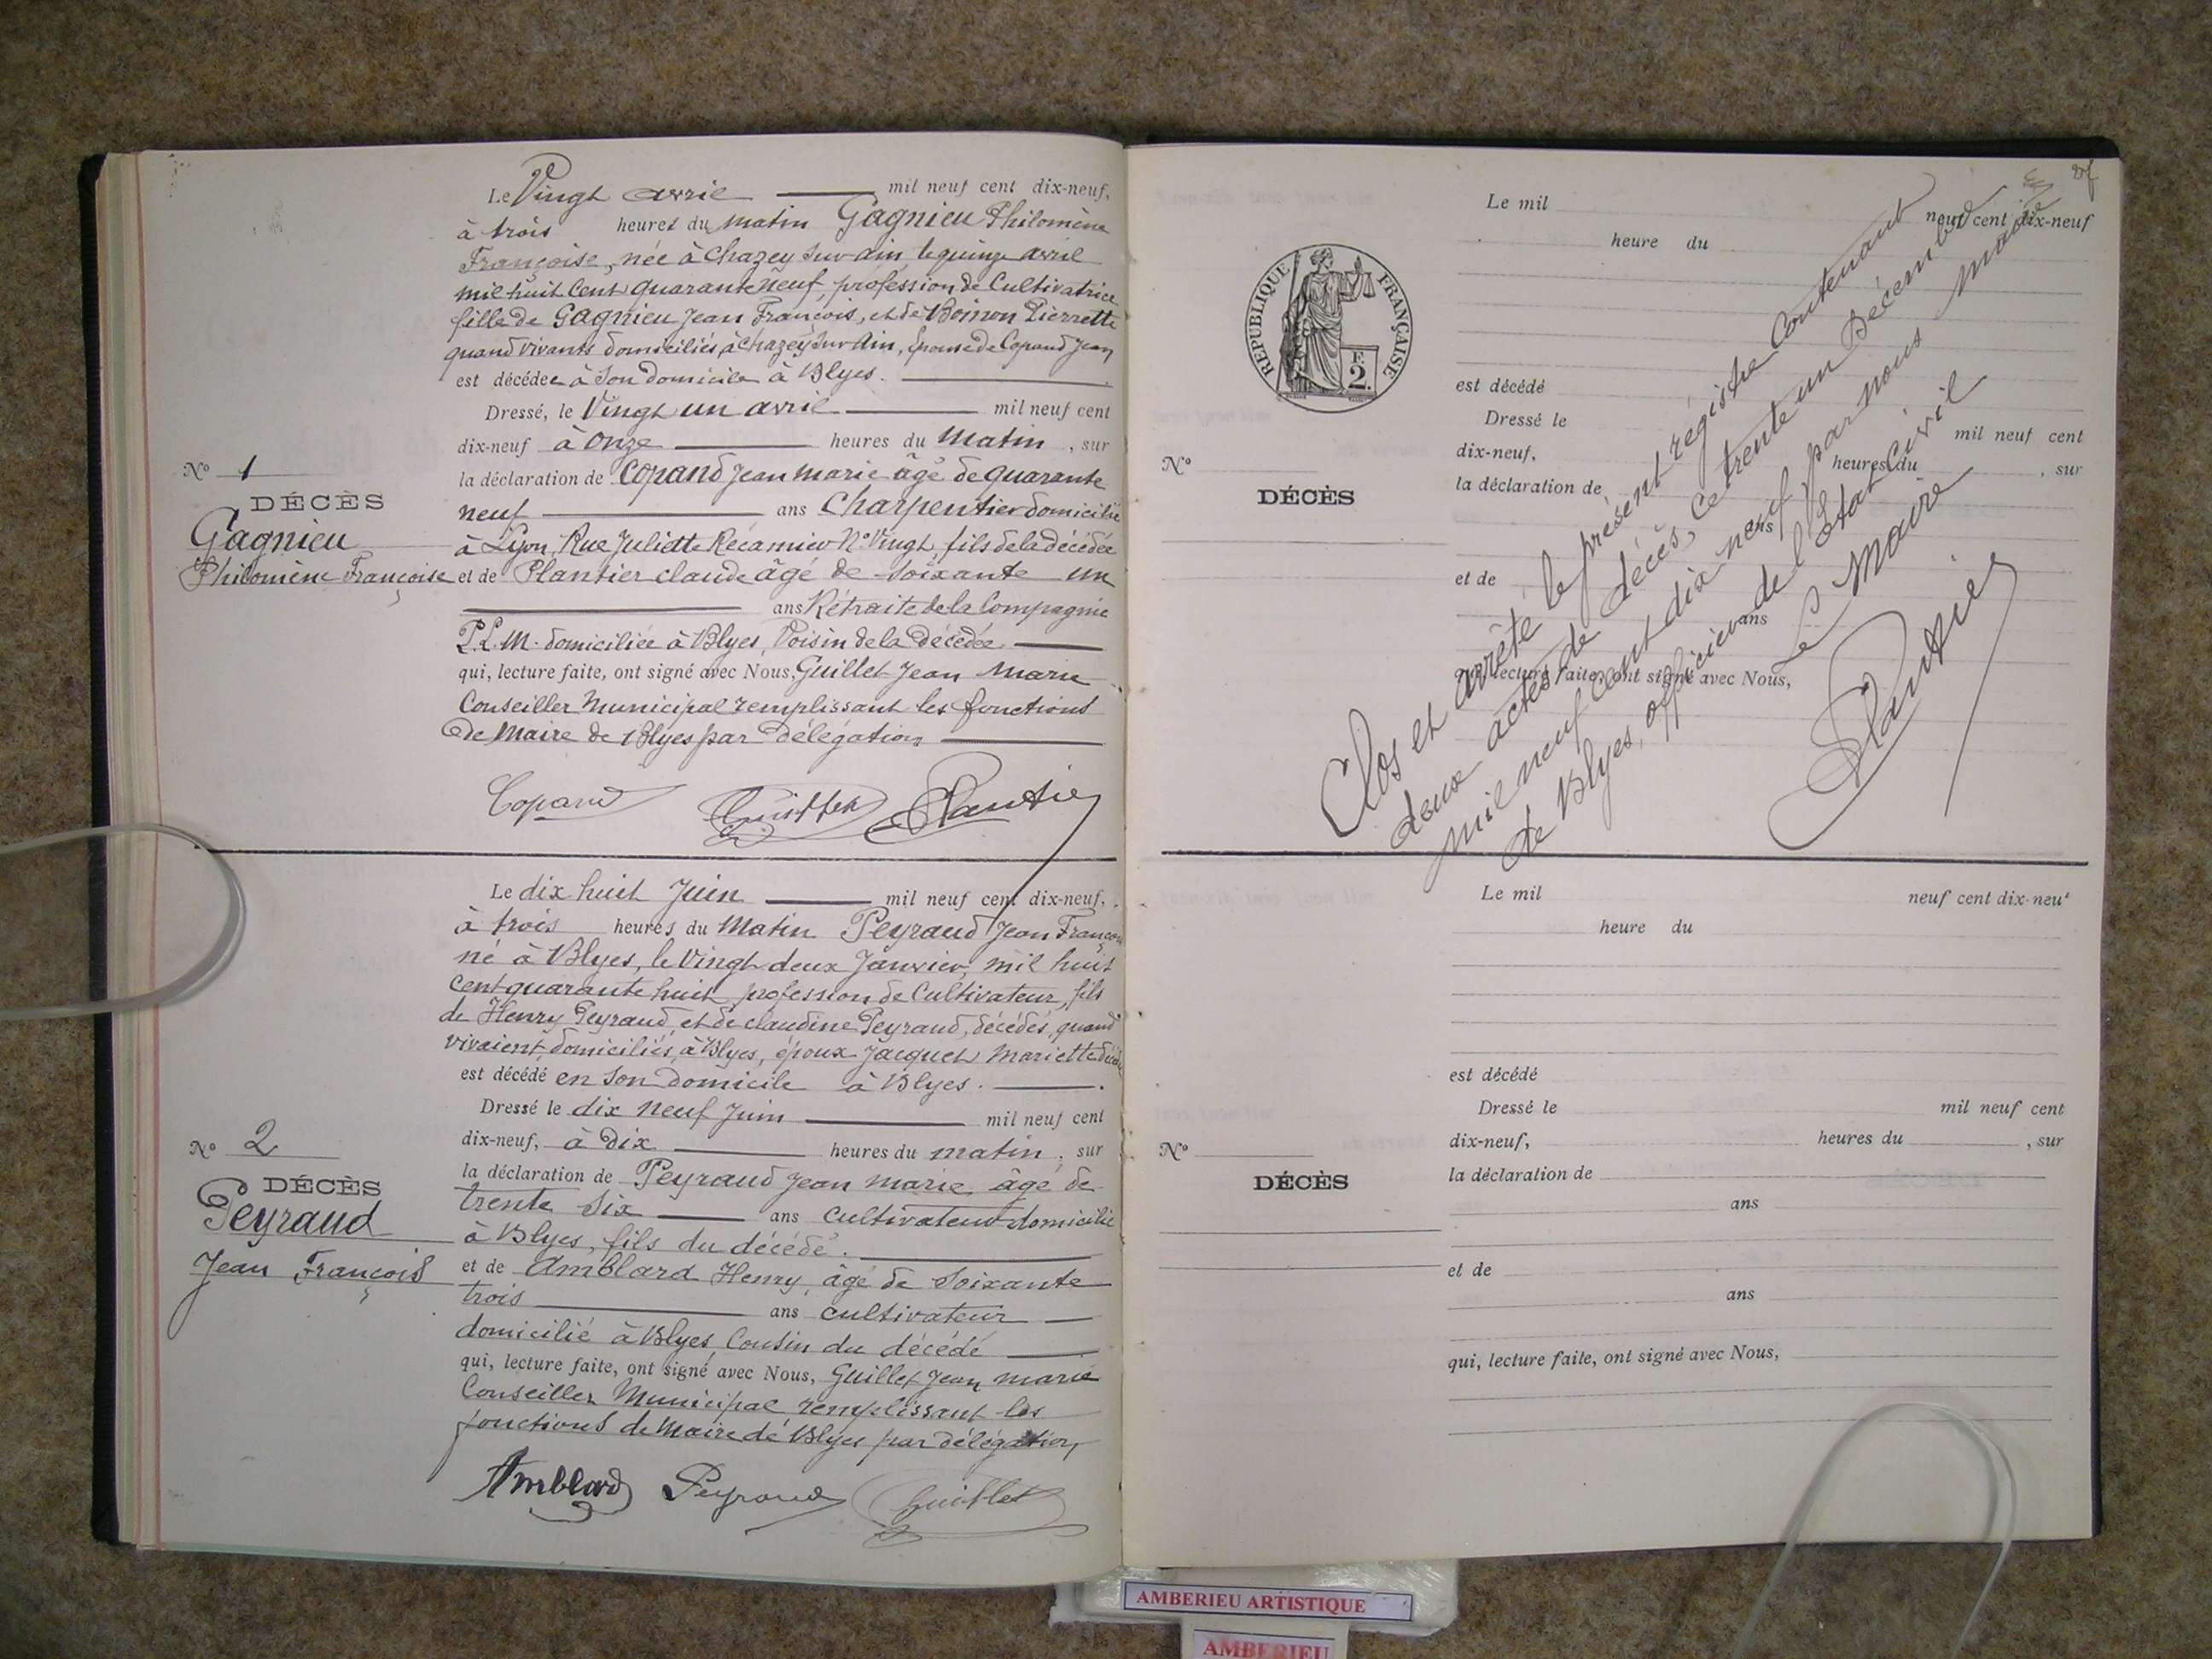 Le Vingt avril mil neuf cent dix-neuf,
à trois heures du matin Gagnieu Philomène
Françoise, née à Chazey Sur Ain le quinze avril
mil huit Cent quarante neuf, profession de Cultivatrice
fille de Gagnieu Jean François, et de Boinon Pierrette
quand vivants domiciliés à Chazey Sur Ain, épouse de Copand Jean
est décédée à Son domicile à Blyes.
Dressé, le Vingt un avril mil neuf cent
dix-neuf à Onze heures du Matin, sur
la déclaration de Copand Jean Marie âgé de quarante
neuf ans Charpentier domicilié
à Lyon, Rue Juliette Récamier N° Vingt, fils de la décédée
et de Plantier claude âgé de Soixante un
ans Rétraité de la Compagnie
P.L.M. domiciliée à Blyes, Voisin de la Décédée
qui, lecture faite, ont signé avec Nous, Guillet Jean Marie
Conseiller Municipal remplissant les fonctions
de Maire de Blyes par délégation
Copand Guillet Plantier
N° 1
DÉCÈS
Gagnieu
Philomène Françoise
Le dix huit Juin mil neuf cent dix-neuf,
à trois heures du Matin Peyraud Jean François
né à Blyes, le Vingt deux Janvier, mil huit
Cent quarante huit profession de Cultivateur, fils
de Henry Peyraud et de claudine Peyraud, décédés, quand
vivaient domiciliés à Blyes, époux Jacquet Mariette
est décédé en Son domicile à Blyes.
Dressé le dix neuf Juin mil neuf cent
dix-neuf, à Dix heures du matin, sur
la déclaration de Peyraud Jean marie, âgé de
trente Six ans cultivateur domicilié
à Blyes, fils du décédé.
et de Amblard Henry, âgé de Soixante
trois ans cultivateur
domicilié à Blyes, Cousin du décédé
qui, lecture faite, ont signé avec Nous, Guillet Jean marie
Conseiller Municipal remplissant les
fonctions de Maire de Blyes par délégation,
Amblard Peyraud Guillet
N° 2
DÉCÈS
Peyraud
Jean François
REPUBLIQUE FRANÇAISE
F.
2.
N°
DÉCÈS
Le mil neuf cent dix-neuf
heure du
est décédé
Dressé le mil neuf cent
dix-neuf, heures du , sur
la déclaration de
ans
et de
ans
qui, lecture faite, ont signé avec Nous,
Clos et arrêté le présent régistre Contenant
deux actes de décès, ce trente un Décembre
mil neuf Cent dix neuf par nous Maire
de Blyes, officier de l'Etat Civil
Le Maire
Plantier
N°
DÉCÈS
Le mil neuf cent dix-neuf
heure du
est décédé
Dressé le mil neuf cent
dix-neuf, heures du , sur
la déclaration de
ans
et de
ans
qui, lecture faite, ont signé avec Nous,
AMBERIEU ARTISTIQUE
AMBERIEU